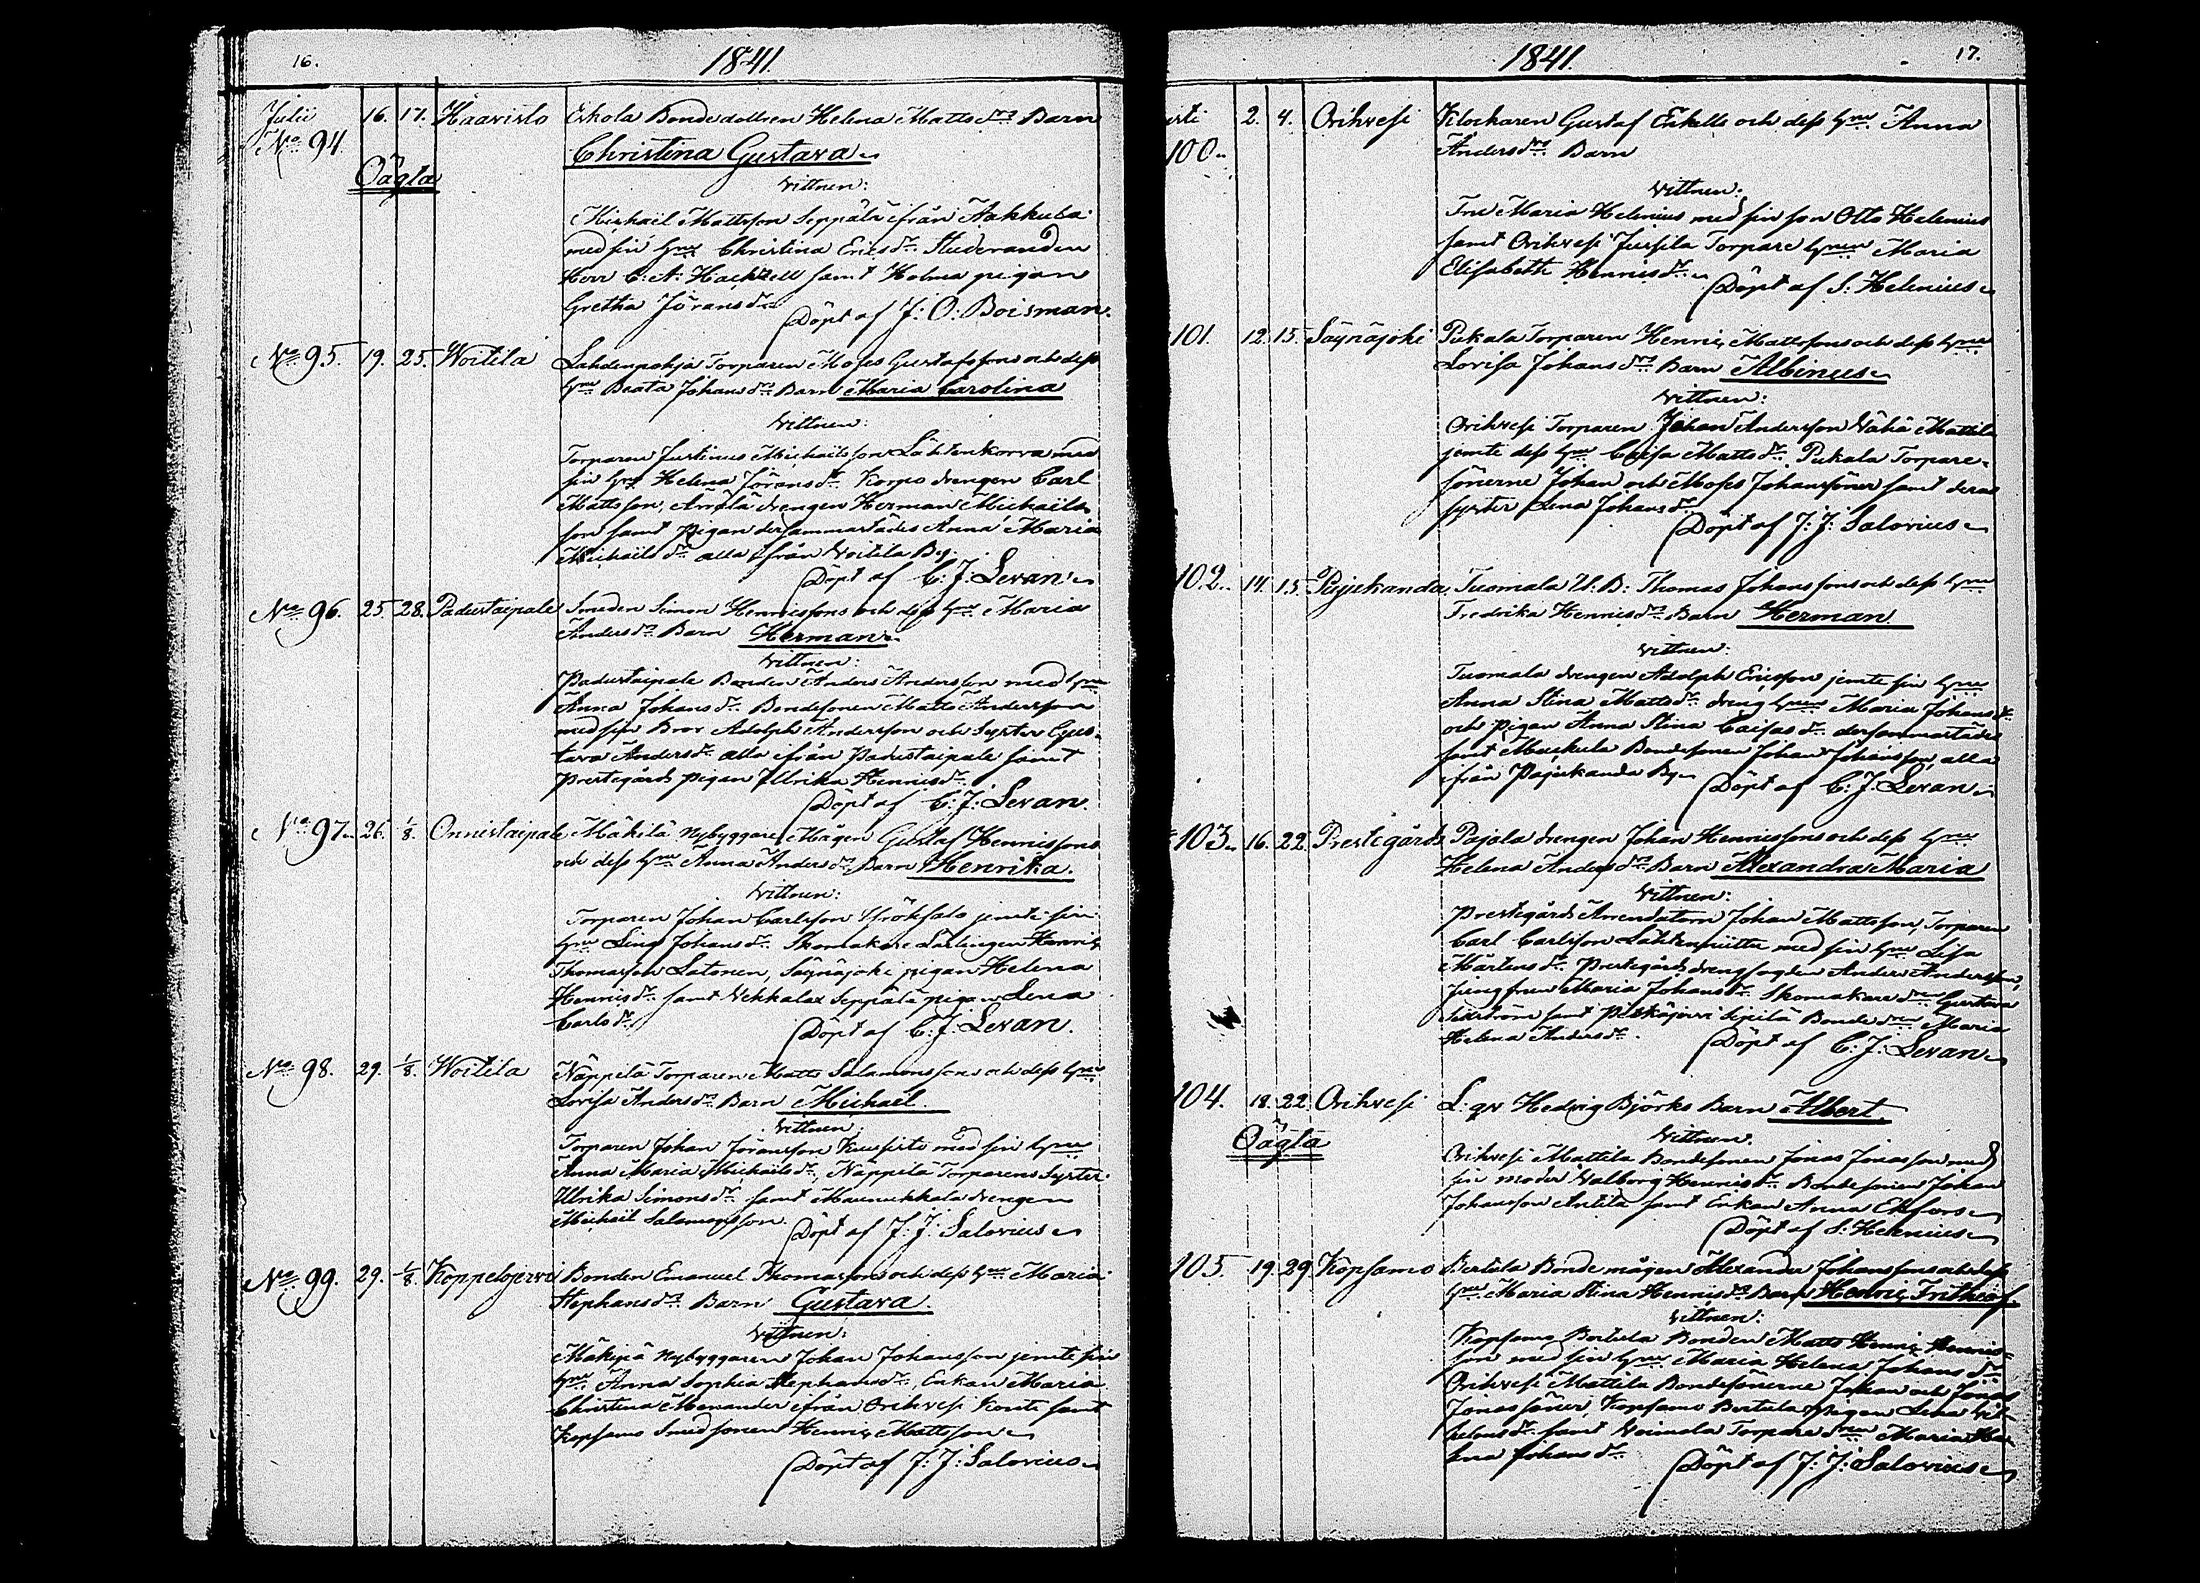 16.
1841.
Julii 16. 17. Haavisto Eskola Bonde dottren Helena Mattsdrs Barn
No 94 Christina Gustava
Oägta
Vittnen:
Michaël Mattsson Seppälä ifrån Aakkula
med sin hu Christina Ericsdr Studeranden
Herr C: A: Hackzell samt Holma pigan
Gretha Jöransdr
Döpt af J: O: Boisman.
No 95. 19. 25. Woitila Lahdenpohja Torparen Moses Gustafssons och dess
hus Beata Johansdrs Barn Maria Carolina
Vittnen:
Torparen Justinus Michaëlsson Lähtenkorva med
sin hu Helena Jöransdr Korpo drengen Carl
Mattsson, drengen Herman Michaëls
son samt pigan dersammastädes Anna Maria
Michaëlsdr alla ifrån Voitila By.
Döpt af C: J: Levan
No 96. 25. 28. Padustaipale Smeden Simon Henricssons och dess hus Maria
Andersdrs Barn Herman
Vittnen:
Padustaipale Bonden Anders Andersson med hu
Anna Johansdr Bondesonen Matts Andersson
med sin Bror Adolph Andersson och Syster Gus-
tava Andersdr alla ifrån Padustaipale samt
Prestegårds pigan Ulrika Henricsdr
Döpt af C: J: Levan.
No 97. 26. 1/8. Onnistaipale Mäkilä Nybyggare Mågen Gustaf Henricssons
och dess hus Anna Andersdrs Barn Henrika.
Vittnen:
Torparen Johan Carlsson jemte sin
hu Johansdr Skomakare Lärlingen Henric
Thomasson Latonen, Säynäjoki pigan Helena
Henricsdr samt Vehkala Seppälä pigan Lena
Carlsdr
Döpt af C: J: Levan.
No 98. 29. 1/8. Woitila Näppelä Torparen Matts Salamonssons och dess hus
Lovisa Andersdrs Barn Michaël.
Vittnen
Torparen Johan Jöransson Kuusisto med sin hu
Anna Maria Michaëlsdr, Näppelä Torparens Syster
Ulrika Simonsdr samt Maunukkala drengen
Michaël Salamonsson.
Döpt af J: J: Salovius
No 99. 29. 1/8. Koppelojervi Bonden Emanuel Thomassons och dess hus Maria
Stephansdrs Barn Gustava.
Vittnen:
Mäkipä Nybyggaren Johan Johansson jemte sin
hu Anna Sophia Stephansdr, Enkan Maria
Christina Menander ifrån Orihvesi samt
Kopsamo Smedsonen Henric Mattsson
Döpt af J: J: Salovius
1841.
17.
sti 2. 4. Orihvesi Klockaren Gustaf Enkells och dess hus Anna
100. Andersdrs Barn
Vittnen:
Fru Maria Helenius med sin son Otto Helenius
samt Orihvesi Jussila Torpare hun Maria
Elisabeth Henricsdr
Döpt af S: Helenius
101. 12. 15. Säynäjoki Pukala Torparen Henric Mattssons och dess hus
Lovisa Johansdrs Barn Albinus
Vittnen:
Orihvesi Torparen Johan Andersson Vähä Mattila
jemte dess hu Caisa Mattsdr, Pukala Torpare-
sönerne Johan och Moses Johanssöner samt deras
syster Lena Johansdr
Döpt af J: J: Salovius
102. 14. 15. Pajukanda Tuomala U: B: Thomas Johanssons och dess hus
Fredrika Henricsdrs Barn Herman.
Vittnen:
Tuomala drengen Adolph Ericsson jemte sin hu
Anna Stina Mattsdr dreng hun Maria Johansdr
och pigan Anna Stina dersammastädes
samt Bondesonen Johan Johansson, alla
ifrån Pajukanda By
Döpt af C: J: Levan
103. 16. 22. Prestegård Pajala drengen Johan Henricssons och dess hus
Helena Andersdrs Barn Alexandra Maria
Vittnen:
Prestegårds Arendatorn Johan Mattsson, Torparen
Carl Carlsson Lähteniitti med sin hu Lisa
Mårtensdr Prestegårds drengfogden Anders Andersson,
Jungfrun Maria Johansdr Skomakare drn Gustava
samt Bonde drn Maria
Helena Andersdr.
Döpt af C: J: Levan
104. 18. 22. Orihvesi L: qv Hedvig Björks Barn Albert
Oägta
Vittnen.
Orihvesi Mattila Bondesonen Jonas Jonasson med
sin moder Valborg Henricsdr Bondesonen Johan
Johansson Antila samt Enkan Anna Ekfors
Döpt af S: Helenius
105. 19. 29. Kopsamo Bertula Bonde mågen Alexander Johanssons och dess
hus Maria Stina Henricsdrs Barn Henric Frithiof
Vittnen:
Kopsamo Bertula Bonden Matts Henric Henrics-
son med sin hu Maria Helena Johansdr
Orihvesi Mattila Bondesönerne Johan och Jonas
Jonassöner, Kopsamo Bertula pigan Lena Vil-
helmsdr samt Torpare drn Maria He-
lena Johansdr
Döpt af J: J: Salovius